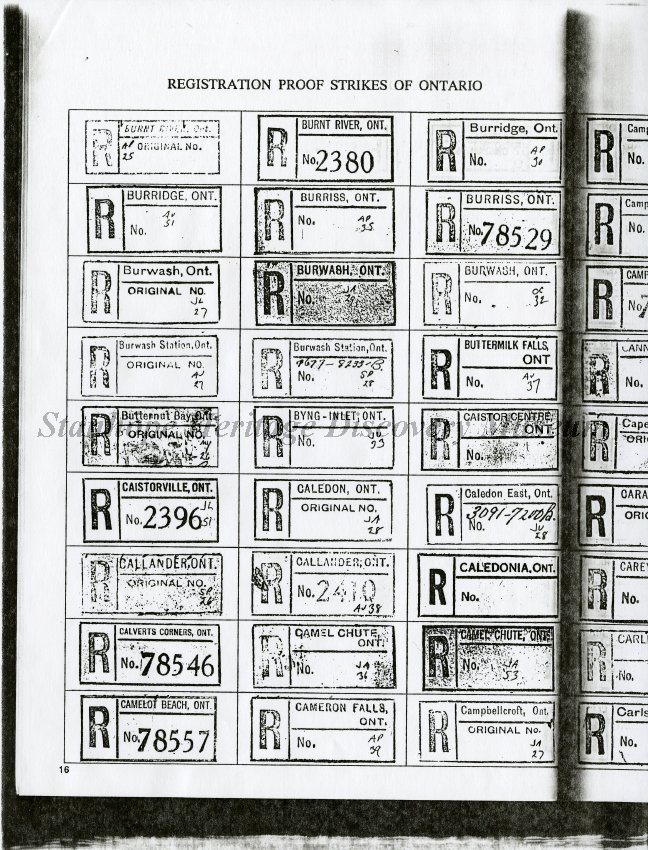 REGISTRATION PROOF STRIKES OF ONTARIO
R BURNT RIVER, Ont.
ORIGINAL No.
AP
25
R BURNT RIVER, ONT.
No. 2380
R Burridge, Ont
No.
AP
30
R Camp
No.
R BURRIDGE, ONT.
No.
AU
51
R BURRISS, ONT.
No.
AP
35
R BURRISS, ONT.
No. 78529
R Camp
No.
R Burwash, Ont.
ORIGINAL NO.
JL
27
R BURWASH, ONT.
No.
JA
R BURWASH, ONT.
No.
OC
32
R CAMP
No.
R Burwash Station, Ont.
ORIGINAL NO.
AU
27
R Burwash Station, Ont.
No.
SP
28
R BUTTERMILK FALLS,
ONT
No.
AU
37
R CANN
No.
R Butternut Bay, Ont
ORIGINAL NO.
26
R BYNG-INLET, ONT.
No.
33
R CAISTOR CENTRE,
ONT.
No.
R Cape
ORIG
Stanhope Heritage Discovery Museum
R CAISTORVILLE, ONT.
No. 2396
JL
51
R CALEDON, ONT.
ORIGINAL NO.
JA
28
R Caledon East, Ont.
No.
JU
28
R CARA
ORIG
R CALLANDER, ONT.
ORIGINAL NO.
SP
26
R CALLANDER, ONT.
No. 2410
AU 38
R CALEDONIA, ONT.
No.
R CAREY
No.
R CALVERTS CORNERS, ONT.
No. 78546
R CAMEL CHUTE,
ONT.
No.
JA
36
R CAMEL CHUTE, ONT.
No.
JA
53
R CARL
No.
R CAMELOT BEACH, ONT.
No. 78557
R CAMERON FALLS,
ONT.
No.
AP
39
R Campbellcroft, Ont.
ORIGINAL NO.
JA
27
R Carls
No.
16